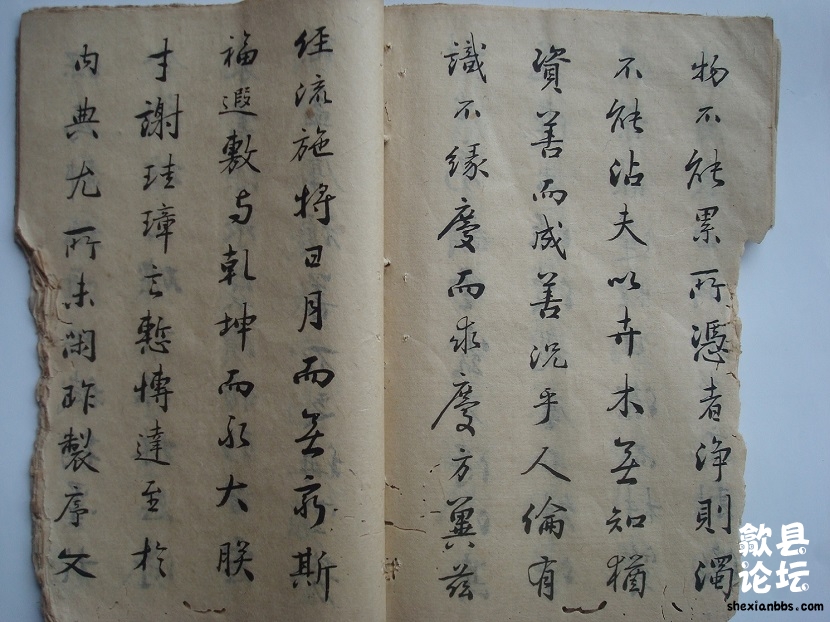 物不能累所憑者淨則濁
不能沾夫以卉木無知猶
資善而成善況乎人倫有
識不緣慶而求慶方冀茲
经流施將日月而無窮斯
福遐敷与乾坤而永大朕
才謝珪璋言慙博達至於
内典尤所未閑昨製序文
歙县
论坛
shexianbbs.com